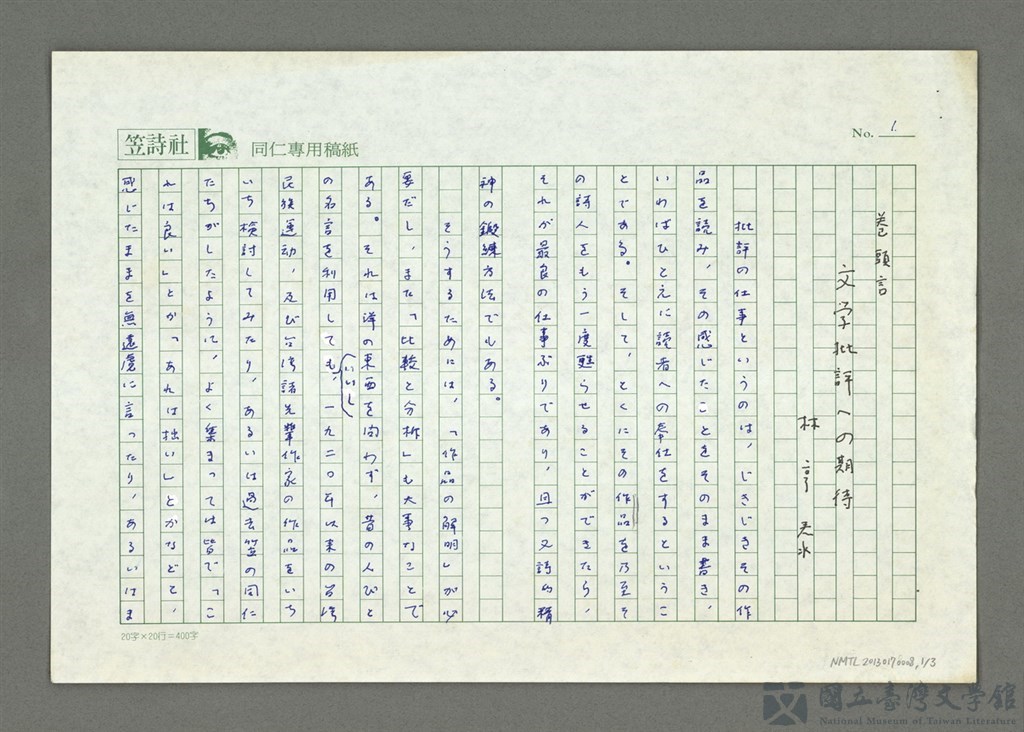 笠詩社
同仁專用稿紙
No. 1.
巻頭言
文学批評への期待
林亨泰
批評の仕事というのは、じきじきその作
品を読み、その感じたことをそのまま書き、
いわばひとえに読者への奉仕をするというこ
とである。そして、とくにその作品を乃至そ
の詩人をもう一度甦らせることができたら、
それが最良の仕事ぶりであり、且つ又詩的精
神の鍛練方法でもある。
そうするためには、「作品の解明」が必
要だし、また「比較と分析」も大事なことで
ある。それは洋の東西を問わず、昔の人びと
の名言を利用しても(いいし)、一九二〇年以来の台湾
民族運动、及び台湾諸先輩作家の作品をいち
いち検討してみたり、あるいは過去笠の同仁
たちがしたように、よく集まっては皆で「こ
れは良い」とか「あれは拙い」とかなどと、
感じたままを無遠慮に言ったり、あるいはま
20字×20行=400字
NMTL20130170008,1/3
國立臺灣文學館
National Museum of Taiwan Literature